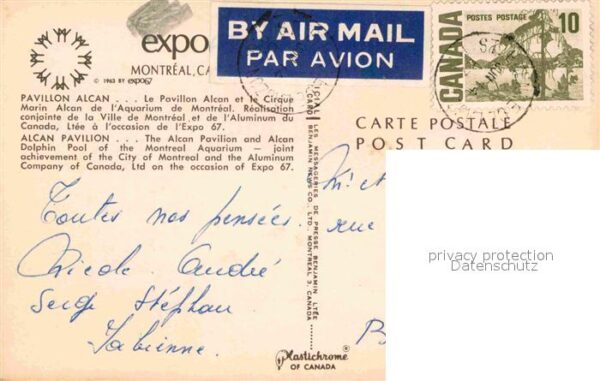 expo
MONTRÉAL, CA
© 1963 BY expo67
PAVILLON ALCAN . . . Le Pavillon Alcan et le Cirque
Marin Alcan de l'Aquarium de Montréal. Réalisation
conjointe de la Ville de Montréal et de l'Aluminum du
Canada, Ltée à l'occasion de l'Expo 67.
ALCAN PAVILION . . . The Alcan Pavilion and Alcan
Dolphin Pool of the Montreal Aquarium — joint
achievement of the City of Montreal and the Aluminum
Company of Canada, Ltd on the occasion of Expo 67.
Toutes nos pensées.
Nicole André
Serge Stéphan
Fabienne.
BY AIR MAIL
PAR AVION
LES MESSAGERIES DE PRESSE BENJAMIN LTÉE
BENJAMIN NEWS CO., LTD. MONTREAL 3, CANADA
Plastichrome ®
OF CANADA
CANADA
POSTES POSTAGE
10
CARTE POSTALE
POST CARD
Mr et
rue
privacy protection
Datenschutz